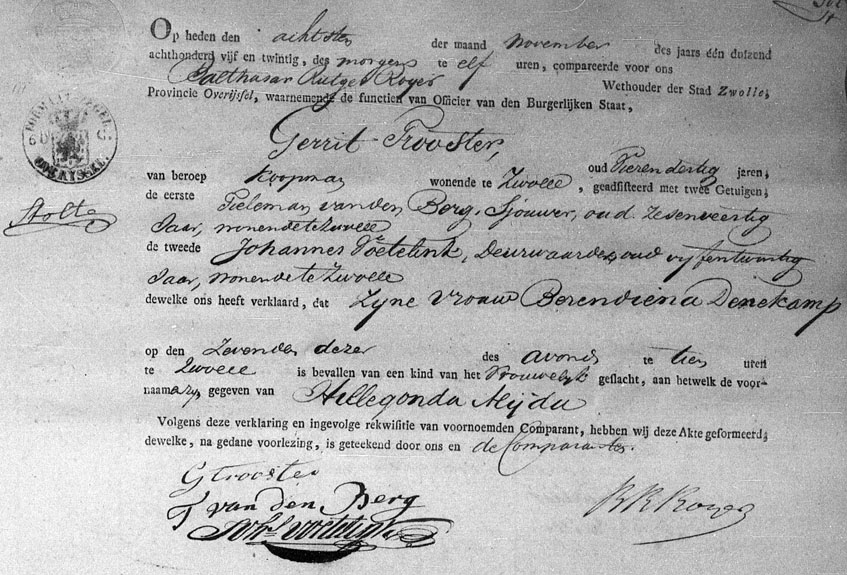 Op heden den achtsten der maand November des jaars één duizend
achthonderd vijf en twintig, des morgens te elf uren, compareerde voor ons
Balthasar Rutger Royer Wethouder der Stad Zwolle,
Provincie Overijssel, waarnemende de functien van Officier van den Burgerlijken Staat,
Gerrit Trooster,
oud Vierendertig jaren,
van beroep Koopman wonende te Zwolle, geadsisteerd met twee Getuigen;
de eerste Tieleman van den Berg, Sjouwer, oud Zesenveertig
Jaar, wonende te Zwolle
de tweede Johannes Voetelink, Deurwaarder, oud vyfentwintig
Jaar, wonende te Zwolle
dewelke ons heeft verklaard, dat Zyne vrouw Berendiena Denekamp
op den Zevenden dezer des avonds te tien uren
te Zwolle is bevallen van een kind van het Vrouwelyk geslacht, aan hetwelk de voor-
naam zy gegeven van Hillegonda Alyda
Volgens deze verklaring en ingevolge rekwisitie van voornoemden Comparant, hebben wij deze Akte geformeerd;
dewelke, na gedane voorlezing, is geteekend door ons en de Comparanten.
G Trooster
T van den Berg
Joh.s Voetelink
B R Royer